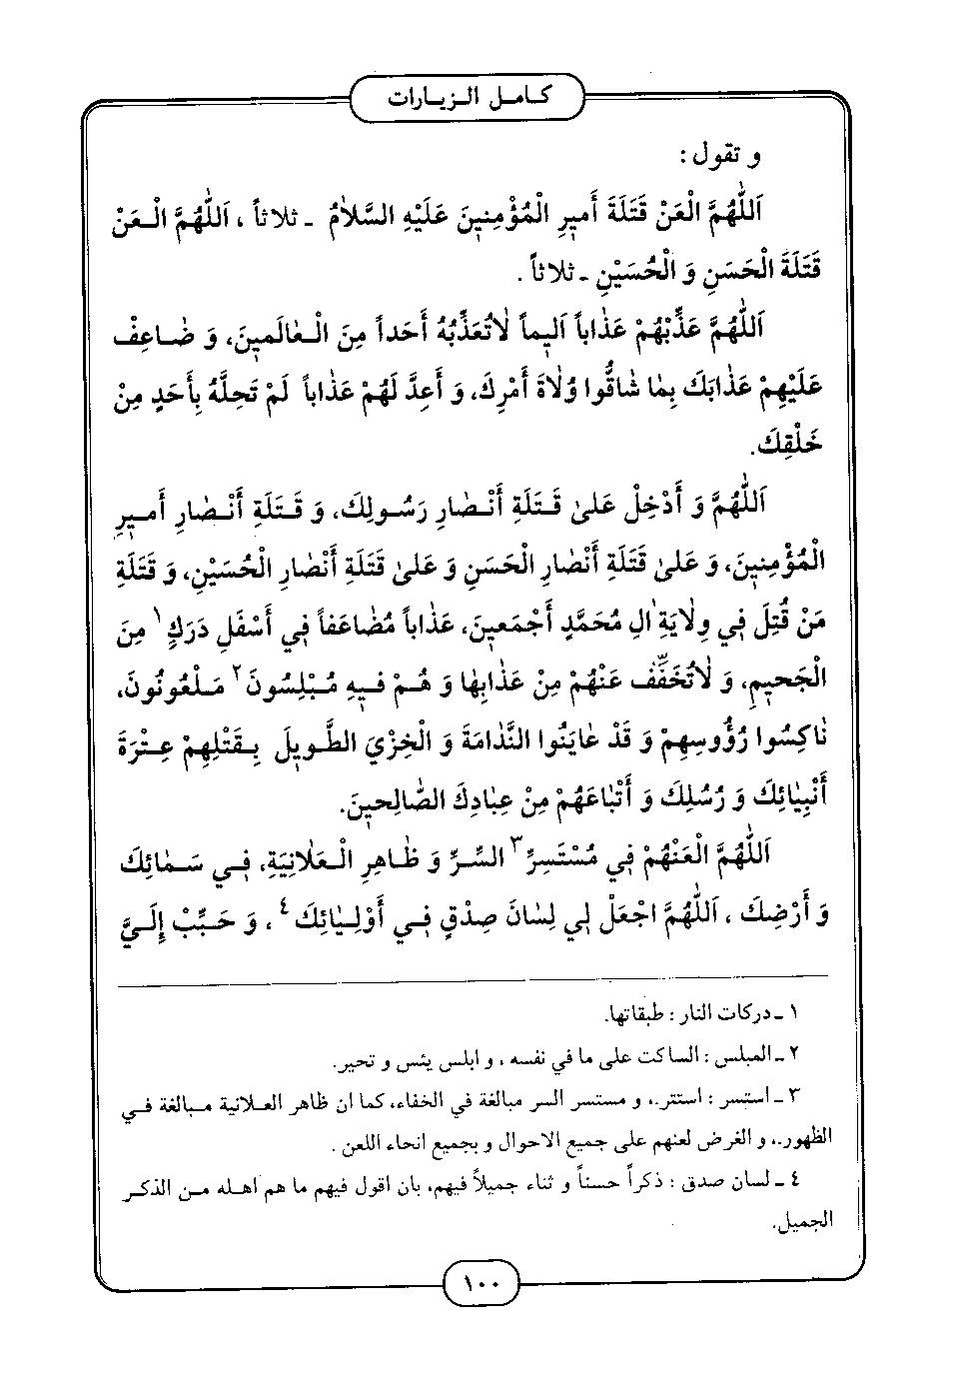 كامل الزيارات
و تقول :
اَللّٰهُمَّ الْعَنْ قَتَلَةَ أَميرِ الْمُؤْمِنينَ عَلَيْهِ السَّلاٰمُ ـ ثلاثاً ، اَللّٰهُمَّ الْعَنْ
قَتَلَةَ الْحَسَنِ وَ الْحُسَيْنِ ـ ثلاثاً .
اَللّٰهُمَّ عَذِّبْهُمْ عَذٰاباً اَليماً لاٰتُعَذِّبُهُ أَحَداً مِنَ الْعٰالَمينَ، وَ ضٰاعِفْ
عَلَيْهِمْ عَذٰابَكَ بِمٰا شٰاقُّوا وُلاٰةَ أَمْرِكَ، وَ أَعِدَّ لَهُمْ عَذٰاباً لَمْ تَحِلَّهُ بِأَحَدٍ مِنْ
خَلْقِكَ.
اَللّٰهُمَّ وَ أَدْخِلْ عَلىٰ قَتَلَةِ أَنْصٰارِ رَسُولِكَ، وَ قَتَلَةِ أَنْصٰارِ أَميرِ
الْمُؤْمِنينَ، وَ عَلىٰ قَتَلَةِ أَنْصٰارِ الْحَسَنِ وَ عَلىٰ قَتَلَةِ أَنْصٰارِ الْحُسَيْنِ، وَ قَتَلَةِ
مَنْ قُتِلَ في وِلاٰيَةِ اٰلِ مُحَمَّدٍ أَجْمَعينَ، عَذٰاباً مُضٰاعَفاً في أَسْفَلِ دَرَكٍ ١ مِنَ
الْجَحيمِ، وَ لاٰتُخَفِّفْ عَنْهُمْ مِنْ عَذٰابِهٰا وَ هُمْ فيهِ مُبْلِسُونَ ٢ مَلْعُونُونَ،
نٰاكِسُوا رُؤُوسِهِمْ وَ قَدْ عٰايَنُوا النَّدٰامَةَ وَ الْخِزْيَ الطَّويلَ بِقَتْلِهِمْ عِتْرَةَ
أَنْبِيٰائِكَ وَ رُسُلِكَ وَ أَتْبٰاعَهُمْ مِنْ عِبٰادِكَ الصّٰالِحينَ.
اَللّٰهُمَّ الْعَنْهُمْ في مُسْتَسِرِّ ٣ السِّرِّ وَ ظٰاهِرِ الْعَلاٰنِيَةِ، في سَمٰائِكَ
وَ أَرْضِكَ ، اَللّٰهُمَّ اجْعَلْ لي لِسٰانَ صِدْقٍ في أَوْلِيٰائِكَ ٤ ، وَ حَبِّبْ إِلَيَّ
١ ـ دركات النار : طبقاتها.
٢ ـ المبلس : الساكت على ما في نفسه ، و ابلس يئس و تحير.
٣ ـ استسر : استتر.، و مستسر السر مبالغة في الخفاء، كما ان ظاهر العلانية مبالغة في
الظهور.، و الغرض لعنهم على جميع الاحوال و بجميع انحاء اللعن .
٤ ـ لسان صدق : ذكراً حسناً و ثناء جميلاً فيهم، بان اقول فيهم ما هم اهله من الذكر
الجميل.
١٠٠